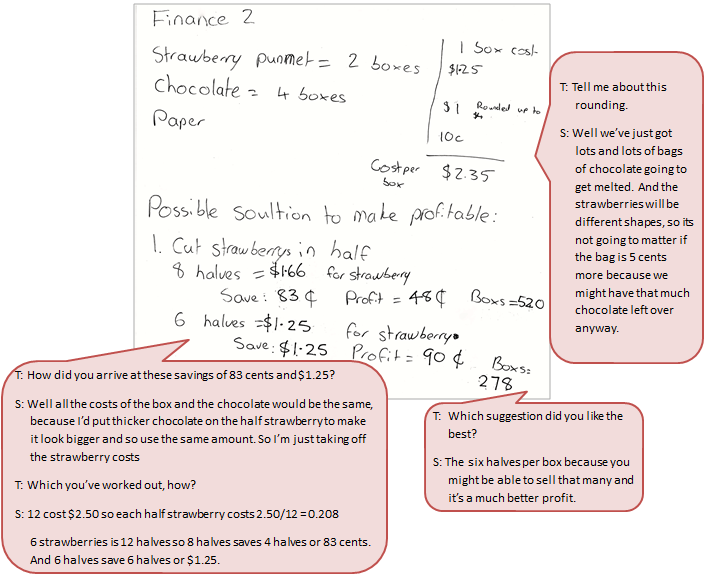 Finance 2
Strawberry punnet = 2 boxes
Chocolate = 4 boxes
Paper
1 box cost
$1.25
$1 Rounded up to
10c
Cost per box $2.35
Possible soultion to make profitable:
1. Cut strawberrys in half
8 halves = $1.66 for strawberry
Save: 83¢ Profit = 48¢ Boxs = 520
6 halves = $1.25 for strawberry.
Save: $1.25 Profit = 90¢ Boxs:
278
T: Tell me about this
rounding.
S: Well we've just got
lots and lots of bags
of chocolate going to
get melted. And the
strawberries will be
different shapes, so its
not going to matter if
the bag is 5 cents
more because we
might have that much
chocolate left over
anyway.
T: How did you arrive at these savings of 83 cents and $1.25?
S: Well all the costs of the box and the chocolate would be the same,
because I'd put thicker chocolate on the half strawberry to make
it look bigger and so use the same amount. So I'm just taking off
the strawberry costs
T: Which you've worked out, how?
S: 12 cost $2.50 so each half strawberry costs 2.50/12 = 0.208
6 strawberries is 12 halves so 8 halves saves 4 halves or 83 cents.
And 6 halves save 6 halves or $1.25.
T: Which suggestion did you like the
best?
S: The six halves per box because you
might be able to sell that many and
it's a much better profit.